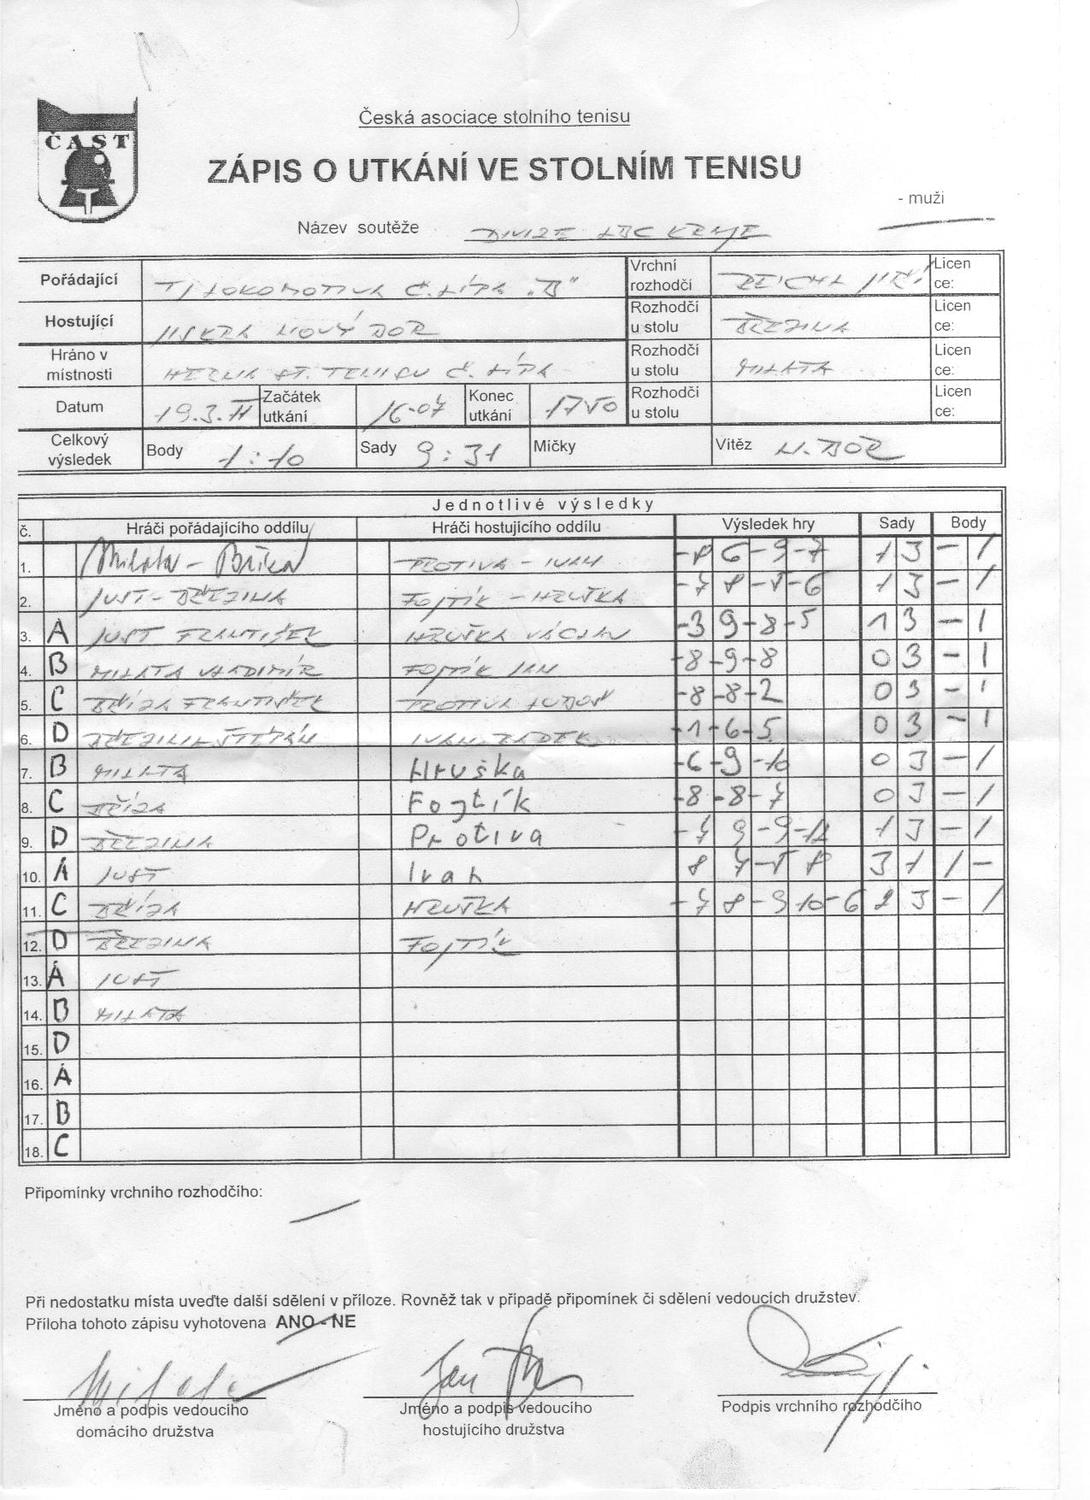 Česká asociace stolního tenisu
ČAST
ZÁPIS O UTKÁNÍ VE STOLNÍM TENISU
- muži
Název soutěže DIVIZE LBC KRAJE
Pořádající TJ LOKOMOTIVA Č. LÍPA "B" Vrchní rozhodčí REICHL JIŘÍ Licence:
Hostující JISKRA NOVÝ BOR Rozhodčí u stolu BŘEZINA Licence:
Hráno v místnosti HERNA ST. TENISU Č. LÍPA Rozhodčí u stolu MILATA Licence:
Datum 19.3.11 Začátek utkání 16-07 Konec utkání 1750 Rozhodčí u stolu Licence:
Celkový výsledek Body 1:10 Sady 9:31 Míčky Vítěz N. BOR
Jednotlivé výsledky
č. Hráči pořádajícího oddílu Hráči hostujícího oddílu Výsledek hry Sady Body
1. Milata - Bříza PROTIVA - IVAN -8 6 -9 -7 1 3 - 1
2. JUST - BŘEZINA FOJTÍK - HRUŠKA -7 8 -5 -6 1 3 - 1
3. A JUST FRANTIŠEK HRUŠKA VÁCLAV -3 9 -8 -5 1 3 - 1
4. B MILATA VLADIMÍR FOJTÍK JAN -8 -9 -8 0 3 - 1
5. C BŘÍZA FRANTIŠEK PROTIVA LUBOŠ -8 -8 -2 0 3 - 1
6. D BŘEZINA ŠTĚPÁN IVAN RADEK -1 -6 -5 0 3 - 1
7. B MILATA Hruška -6 -9 -10 0 3 - 1
8. C BŘÍZA Fogtík -8 -8 -7 0 3 - 1
9. D BŘEZINA Protiva -7 9 -9 -12 1 3 - 1
10. A JUST Ivan 8 7 -5 8 3 1 1 -
11. C BŘÍZA HRUŠKA -7 8 -9 10 -6 2 3 - 1
12. D BŘEZINA FOJTÍK
13. A JUST
14. B MILATA
15. D
16. A
17. B
18. C
Připomínky vrchního rozhodčího:
Při nedostatku místa uveďte další sdělení v příloze. Rovněž tak v případě připomínek či sdělení vedoucích družstev.
Příloha tohoto zápisu vyhotovena ANO - NE
Milata Jan
Jméno a podpis vedoucího Jméno a podpis vedoucího Podpis vrchního rozhodčího
domácího družstva hostujícího družstva